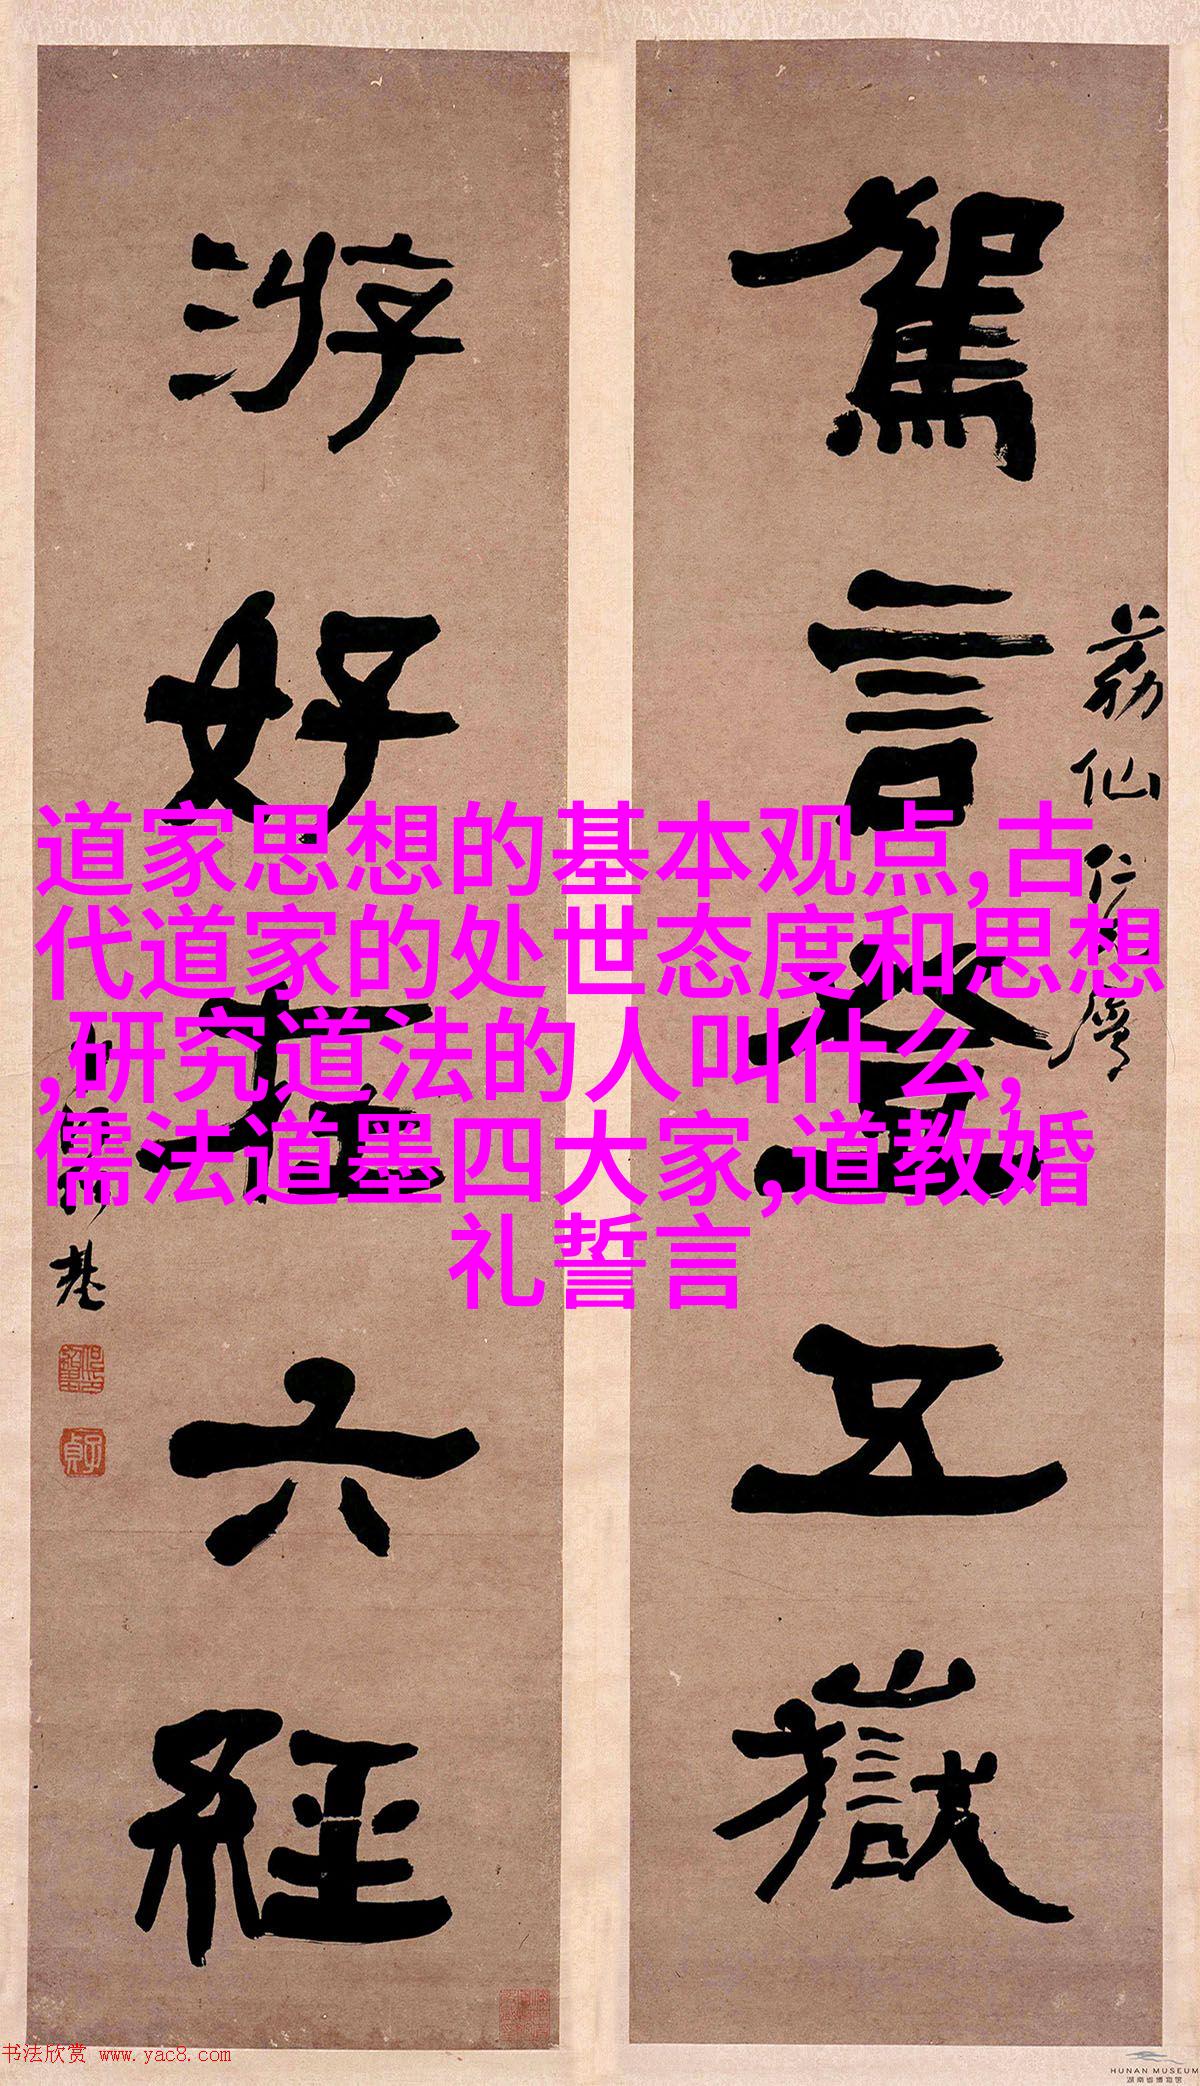 駕言登五嶽
荔仙仁
游好在六經
何紹基
道家思想的基本观点,古
代道家的处世态度和思想
,研究道法的人叫什么,
儒法道墨四大家,道教婚
礼誓言
子貞
书法欣赏 www.yac8.com
HUNAN MUSEUM
湖南省博物馆